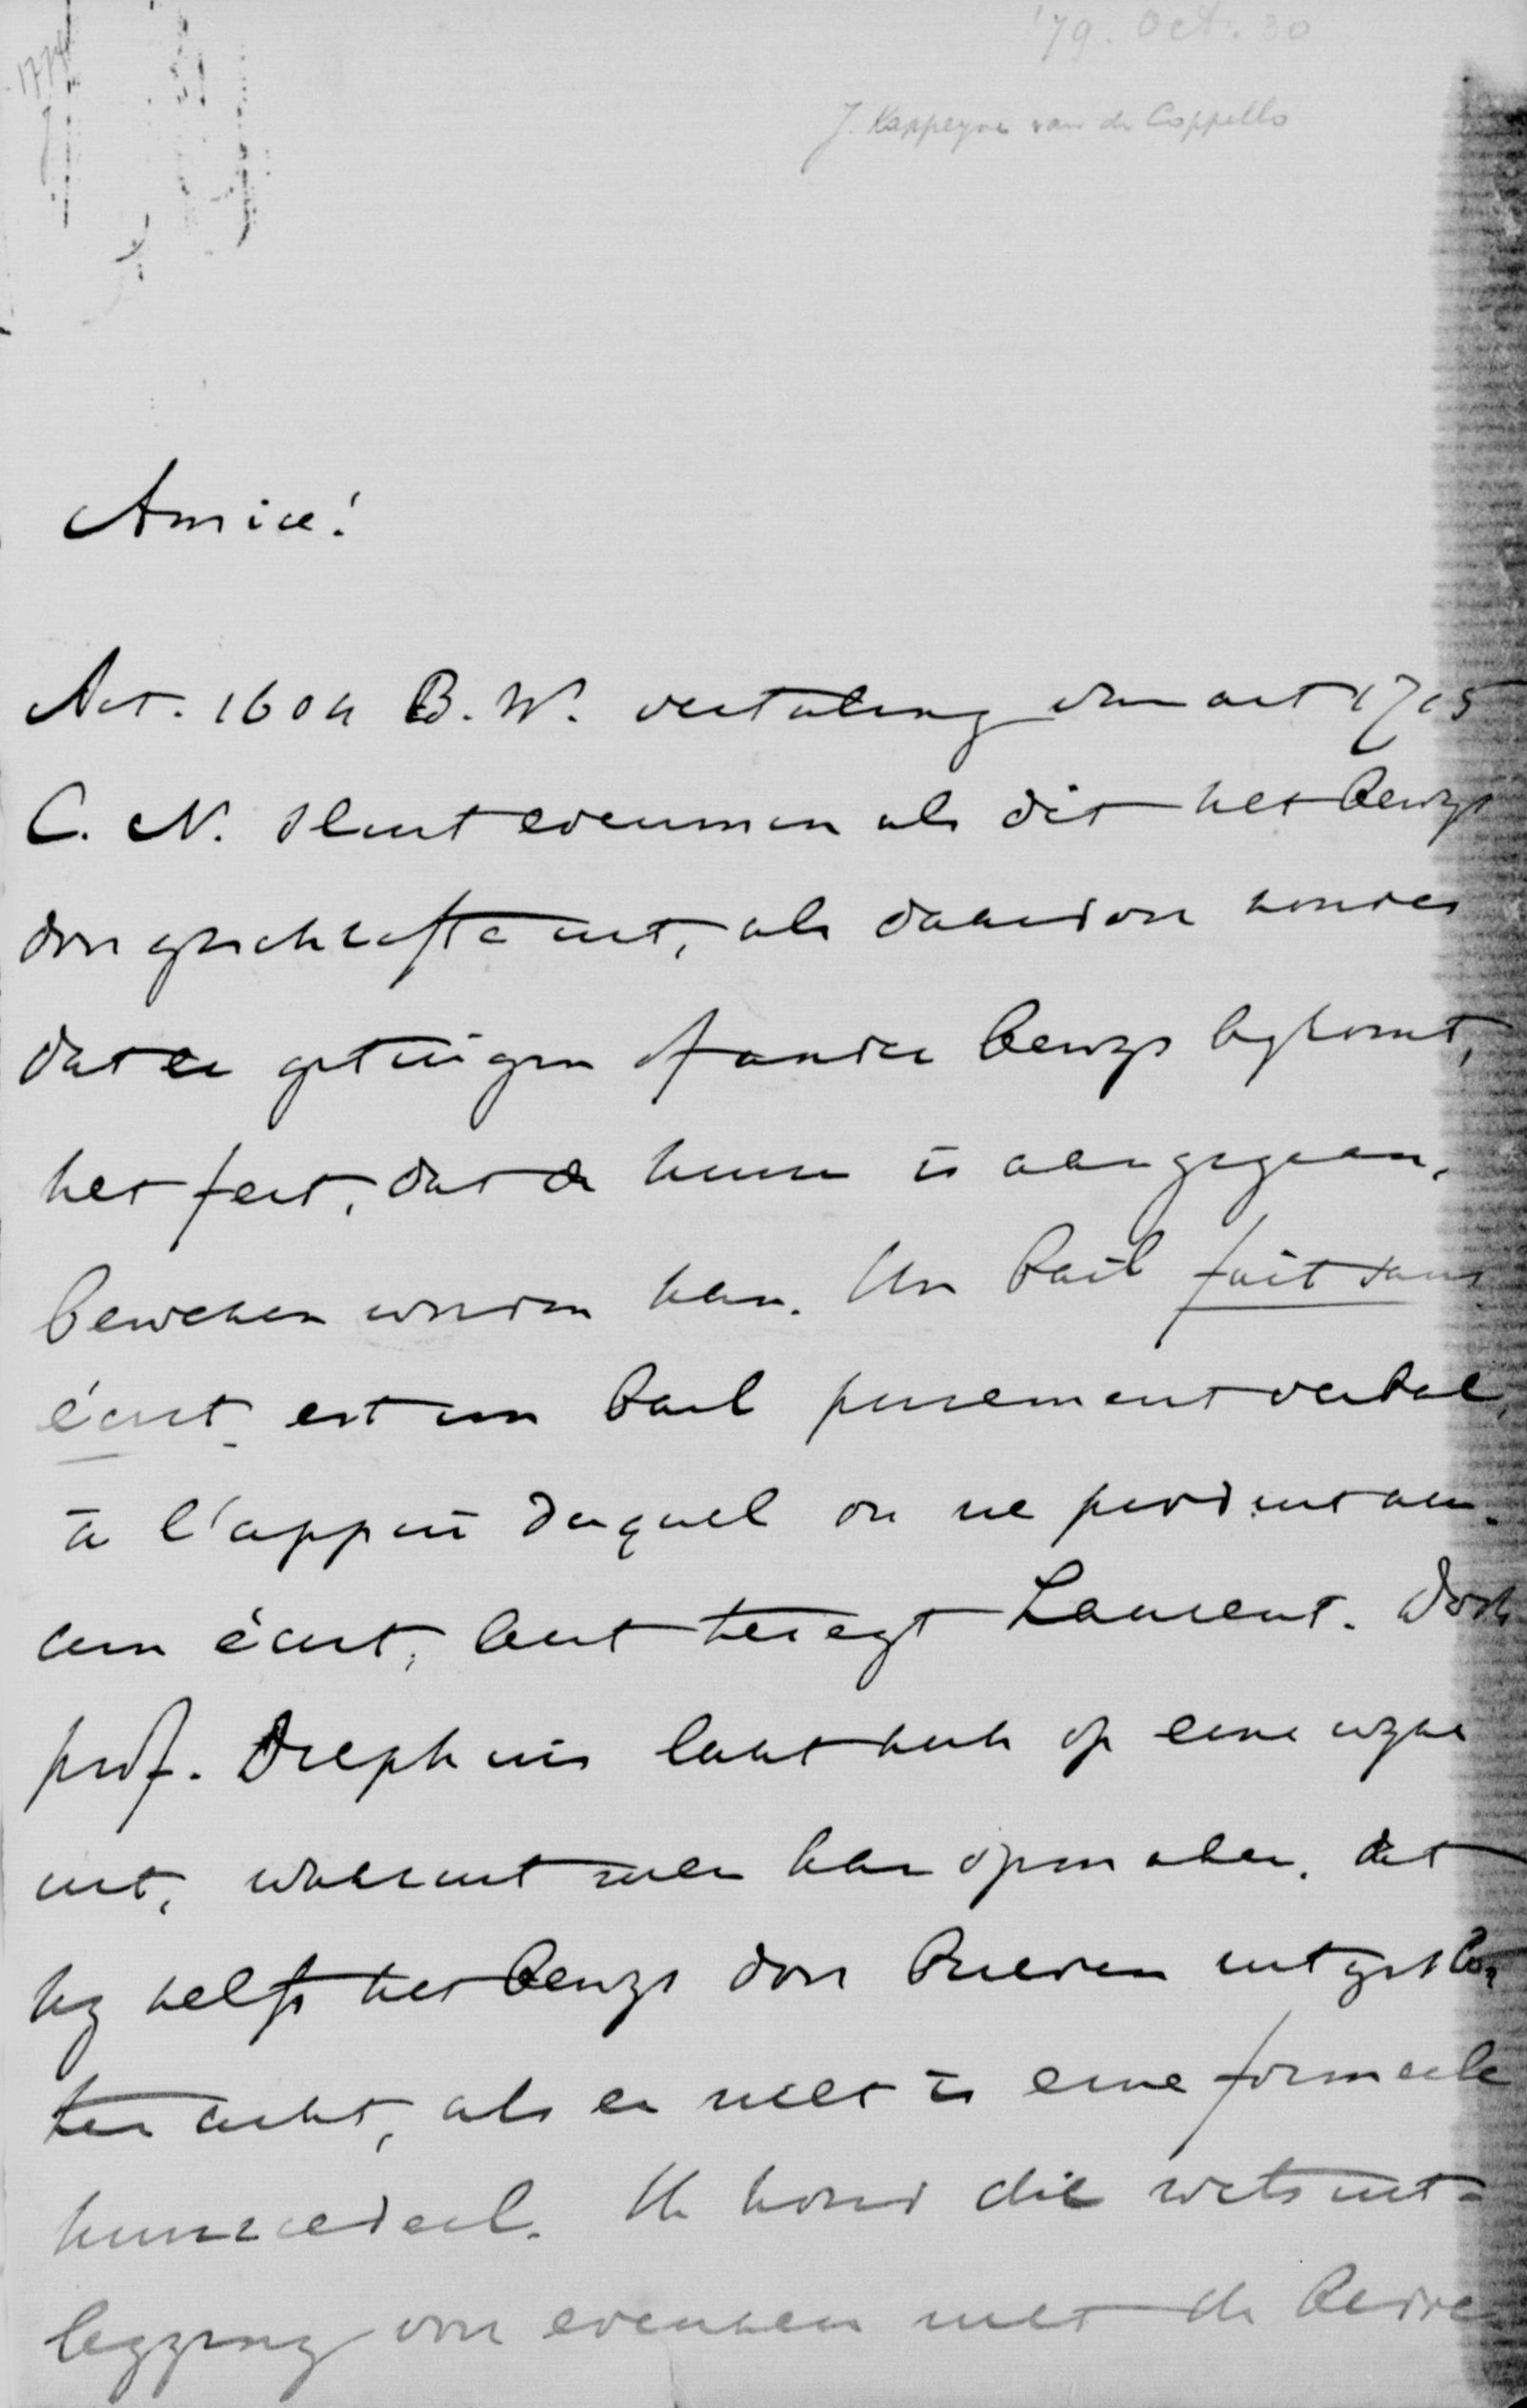 '79. Oct. 30
J. Kappeyne van de Coppello
Amice!
Art. 1604 B.W. vertaling van art 1715
C. N. sluit evenmin als dit het bewijs
door geschrifte uit, als daardoor zonder
dat er getuigen of ander bewijs bijkomt,
het feit, dat de huur is aangegaan,
bewezen worden kan. Un bail fait sans
écrit est un bail purement verbal,
à l'appui duquel on ne produit au-
cun écrit, leert teregt Laurent. Doch
prof. Diephuis laat zich op eene wijze
uit, waaruit men kan opmaken, dat
hij zelfs het bewijs door brieven uitgeslo-
ten acht, als er niet is eene formeele
huurcedeel. Ik houd die wetsuit-
legging voor